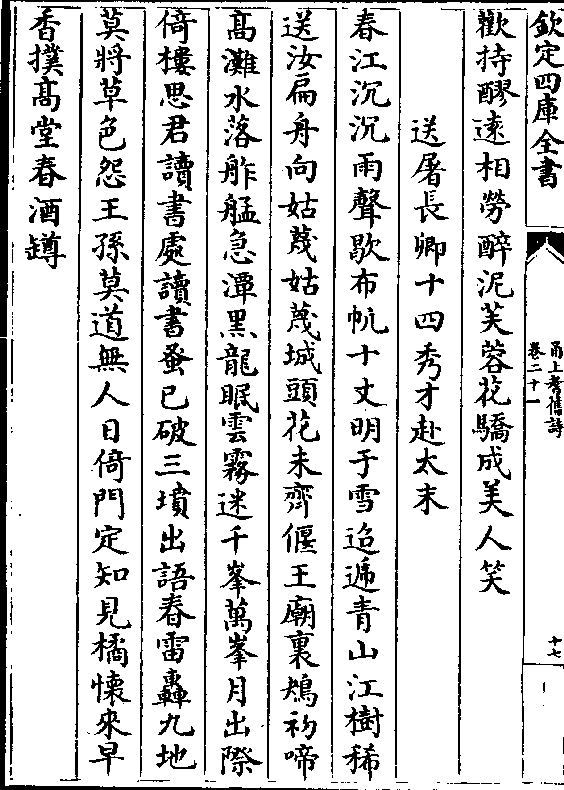 欽定四庫全書
甬上耆舊詩
卷二十一
十七
歡持醪遠相勞醉泥芙蓉花驕成美人笑
送屠長卿十四秀才赴太末
春江沉沉雨聲歇布帆十丈明于雪迢遞青山江樹稀
送汝扁舟向姑蔑姑蔑城頭花未齊偃王廟裏鴂初啼
髙灘水落舴艋急潭黑龍眠雲霧迷千峯萬峯月出際
倚樓思君讀書處讀書蚤已破三墳出語春雷轟九地
莫將草色怨王孫莫道無人日倚門定知見橘懷來早
香撲髙堂春酒罇